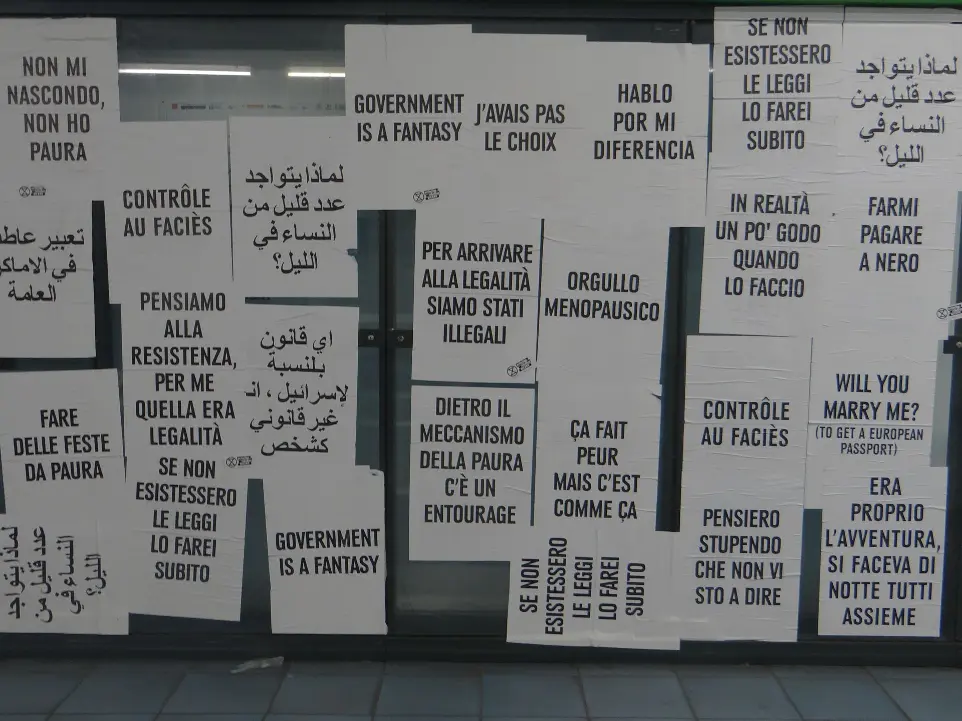 NON MI
NASCONDO,
NON HO
PAURA
تعبير
في الاماكن
العامة
FARE
DELLE FESTE
DA PAURA
لماذا يتواجد
عدد قليل من
النساء في
الليل؟
CONTRÔLE
AU FACIÈS
لماذا يتواجد
عدد قليل من
النساء في
الليل؟
PENSIAMO
ALLA
RESISTENZA,
PER ME
QUELLA ERA
LEGALITÀ
اي قانون
بلنسبة
لإسرائيل ،
غير قانوني
كشخص
SE NON
ESISTESSERO
LE LEGGI
LO FAREI
SUBITO
GOVERNMENT
IS A FANTASY
GOVERNMENT
IS A FANTASY
J'AVAIS PAS
LE CHOIX
HABLO
POR MI
DIFERENCIA
PER ARRIVARE
ALLA LEGALITÀ
SIAMO STATI
ILLEGALI
ORGULLO
MENOPAUSICO
DIETRO IL
MECCANISMO
DELLA PAURA
C'È UN
ENTOURAGE
ÇA FAIT
PEUR
MAIS C'EST
COMME ÇA
SE NON
ESISTESSERO
LE LEGGI
LO FAREI
SUBITO
SE NON
ESISTESSERO
LE LEGGI
LO FAREI
SUBITO
لماذا يتواجد
عدد قليل من
النساء في
الليل؟
IN REALTÀ
UN PO' GODO
QUANDO
LO FACCIO
FARMI
PAGARE
A NERO
CONTRÔLE
AU FACIÈS
WILL YOU
MARRY ME?
(TO GET A EUROPEAN
PASSPORT)
PENSIERO
STUPENDO
CHE NON VI
STO A DIRE
ERA
PROPRIO
L'AVVENTURA,
SI FACEVA DI
NOTTE TUTTI
ASSIEME